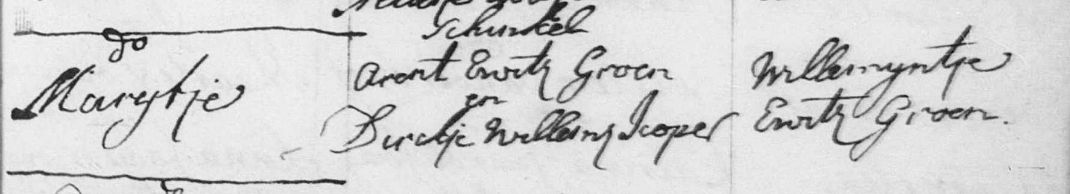 Schinkel
do
Marytje
Arent Ewitz Groen
en
Dirckje Willemz Scoper
Willemyntje
Ewitz Groen.